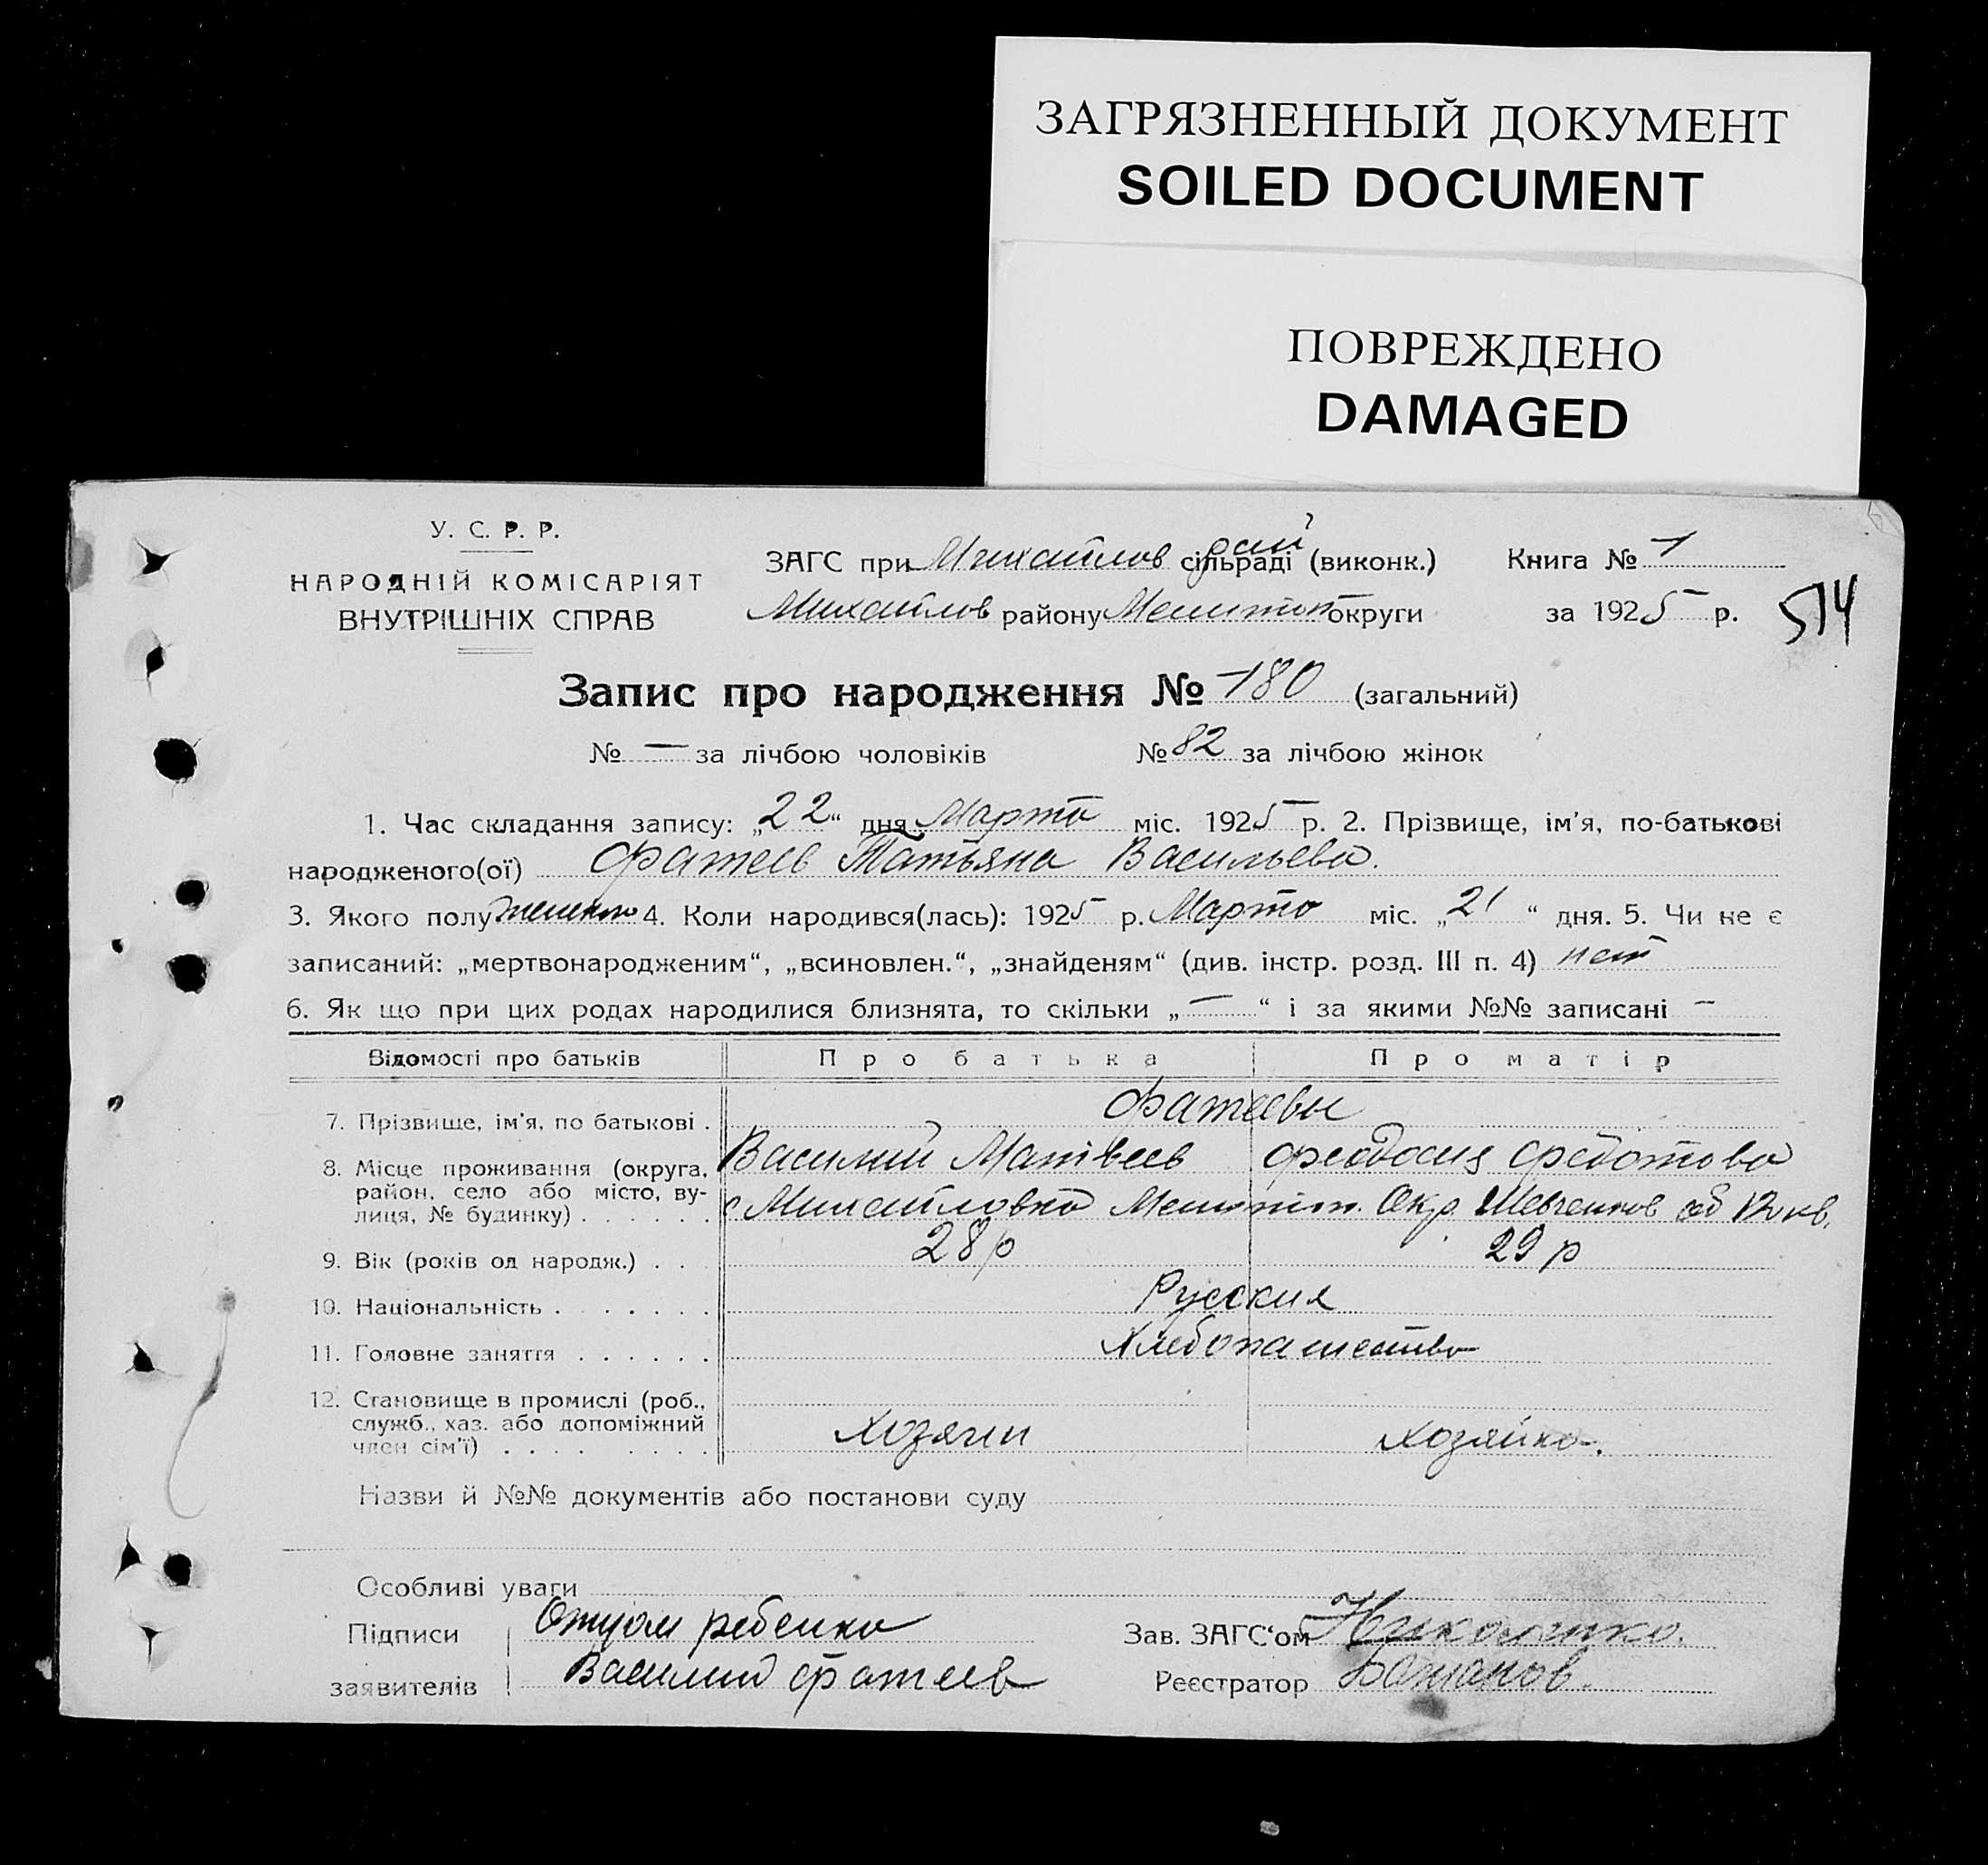 ЗАГРЯЗНЕННЫЙ ДОКУМЕНТ
SOILED DOCUMENT
ПОВРЕЖДЕНО
DAMAGED
У. С. Р. Р.
НАРОДНІЙ КОМІСАРІЯТ
ВНУТРІШНІХ СПРАВ
ЗАГС при Михайлов рай сільраді (виконк.)
Михайлов району Мелитоп округи
Книга № 1
за 1925 р.
514
Запис про народження № 180 (загальний)
№ — за лічбою чоловіків № 82 за лічбою жінок
1. Час складання запису: „22“ дня Марта міс. 1925 р. 2. Прізвище, ім'я, по-батькові
народженого(ої) Фатеев Татьяна Васильева.
3. Якого полу женского 4. Коли народився(лась): 1925 р. Марта міс. „21“ дня. 5. Чи не є
записаний: „мертвонародженим“, „всиновлен.“, „знайденям“ (див. інстр. розд. III п. 4) нет
6. Як що при цих родах народилися близнята, то скільки „—“ і за якими №№ записані —
Відомості про батьків Про батька Про матір
7. Прізвище, ім'я, по батькові . Фатеевы
Василий Матвеев Феодосия Федотова
8. Місце проживання (округа,
район, село або місто, ву-
лиця, № будинку) . . . . . . с Михайловка Мелитоп. Окр Шевченков об кв.
9. Вік (років од народж.) . . . 28 р 29 р
10. Національність . . . . . . . Русския
11. Головне заняття . . . . . . Хлебопашество
12. Становище в промислі (роб.,
служб., хаз. або допоміжний
член сім'ї) . . . . . . . . Хозяин Хозяйка.
Назви й №№ документів або постанови суду
Особливі уваги
Підписи Отцом ребенка
заявителів Василий Фатеев
Зав. ЗАГС‘ом
Реєстратор